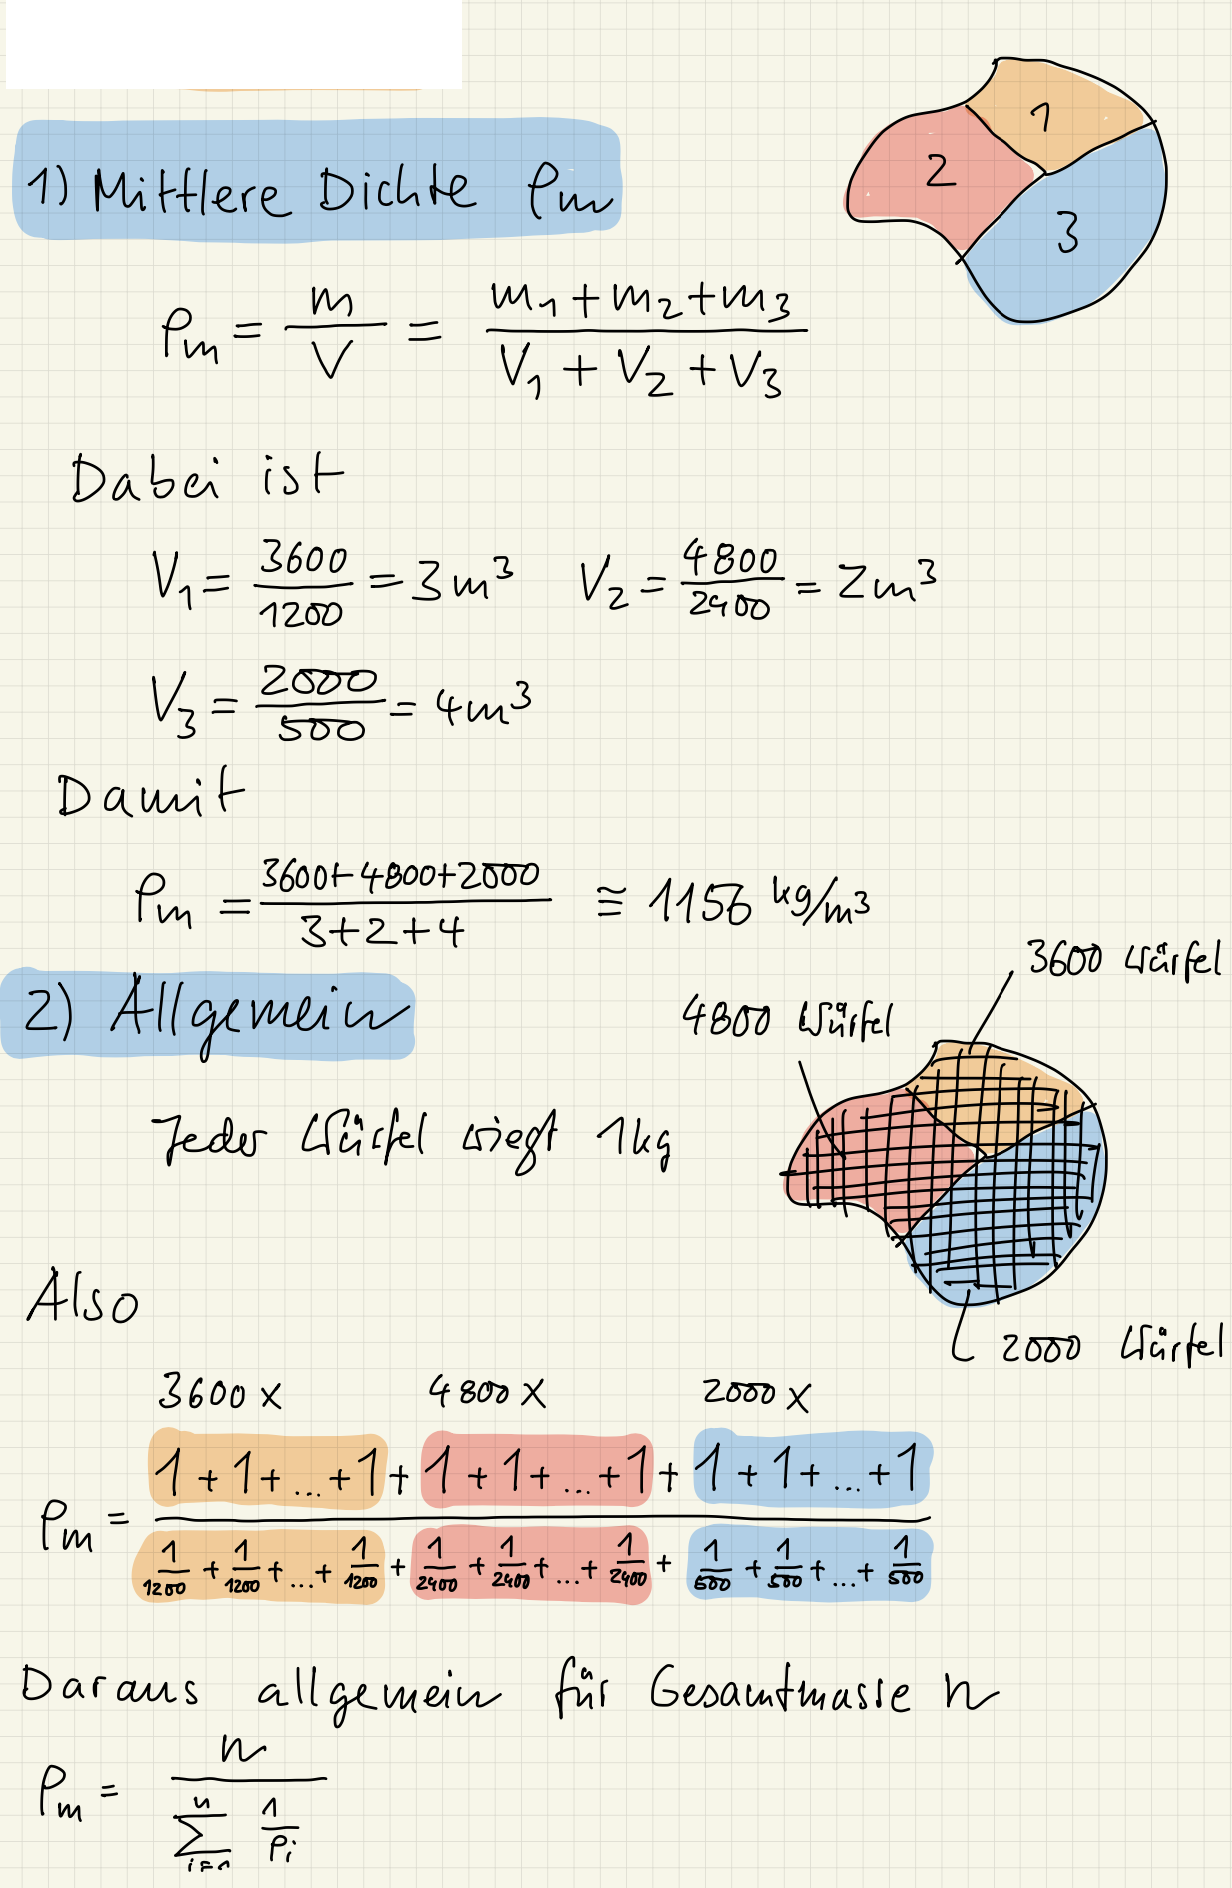 1) Mittlere Dichte ρm
1
2
3
ρm = m/V = (m1+m2+m3)/(V1+V2+V3)
Dabei ist
V1 = 3600/1200 = 3 m³   V2 = 4800/2400 = 2 m³
V3 = 2000/500 = 4 m³
Damit
ρm = (3600+4800+2000)/(3+2+4) ≅ 1156 kg/m³
3600 Würfel
2) Allgemein
4800 Würfel
Jeder Würfel wiegt 1kg
Also
2000 Würfel
3600 x   4800 x   2000 x
ρm = (1+1+...+1 + 1+1+...+1 + 1+1+...+1)/(1/1200+1/1200+...+1/1200 + 1/2400+1/2400+...+1/2400 + 1/500+1/500+...+1/500)
Daraus allgemein für Gesamtmasse n
ρm = n/(∑_{i=1}^{n} 1/ρi)